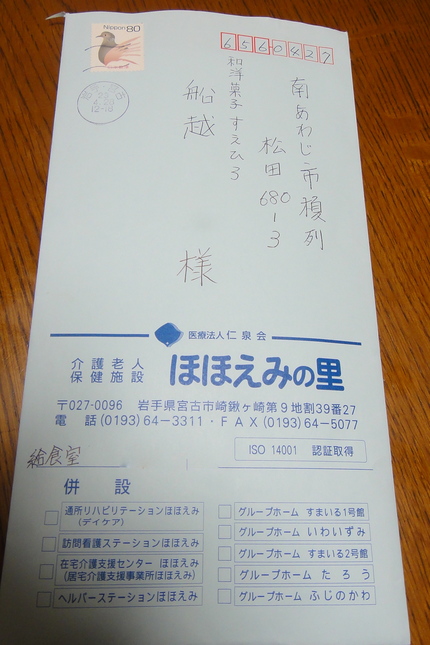 Nippon 80
6560427
南あわじ市榎列
松田
680-3
和洋菓子すえひろ
船越
様
医療法人仁泉会
介護老人
保健施設
ほほえみの里
〒027-0096 岩手県宮古市崎鍬ヶ崎第9地割39番27
電話(0193)64-3311・FAX(0193)64-5077
ISO 14001 認証取得
給食室
併設
通所リハビリテーションほほえみ
(デイケア)
訪問看護ステーションほほえみ
在宅介護支援センター ほほえみ
(居宅介護支援事業所ほほえみ)
ヘルパーステーションほほえみ
グループホーム すまいる1号館
グループホーム いわいずみ
グループホーム すまいる2号館
グループホーム たろう
グループホーム ふじのかわ